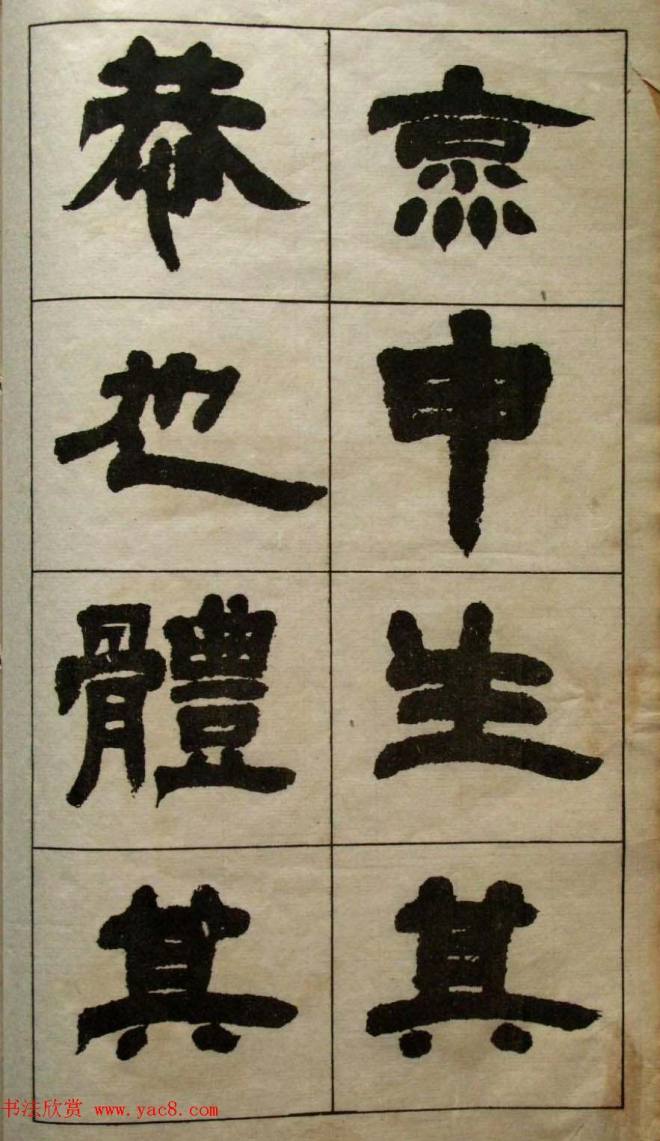 烹申生其
恭也體其
书法欣赏 www.yac8.com